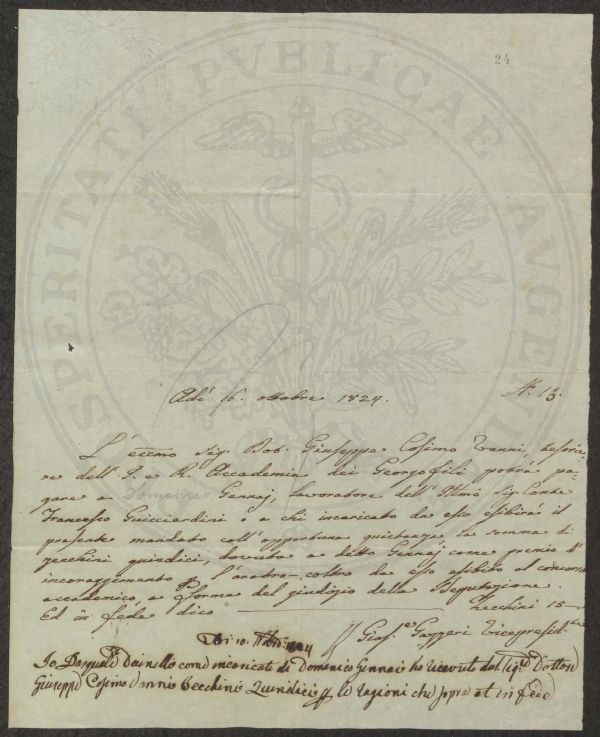 24
PROSPERITATI PVBLICAE AVGENDAE
Adì 16. ottobre 1824.
N.° 13.
L' eccmo Sig. Dot. Giuseppe Cosimo Vanni, tesorie-
re dell' I. e R. Accademia dei Georgofili potrà pa-
gare a Domenico Gennaj, lavoratore dell' Illmo Sig. Conte
Francesco Guicciardini o a chi incaricato da esso esibirà il
presente mandato coll' opportuna quietanza, la somma di
zecchini quindici, dovuta a detto Gennaj come premio d'
incoraggiamento p. l' aratro-coltro da esso esibito al concorso
accademico, a forma del giudizio della Deputazione.
Ed in fede dico Zecchini 15
Gius.e Gazzeri Vicepresid.te
Io Pasquale Dainelli come incaricato di Domenico Gennai ho ricevuto dal Sig.re Dottore
Giuseppe Cosimo Vanni Zecchini Quindici le ragioni che sopra et in fede